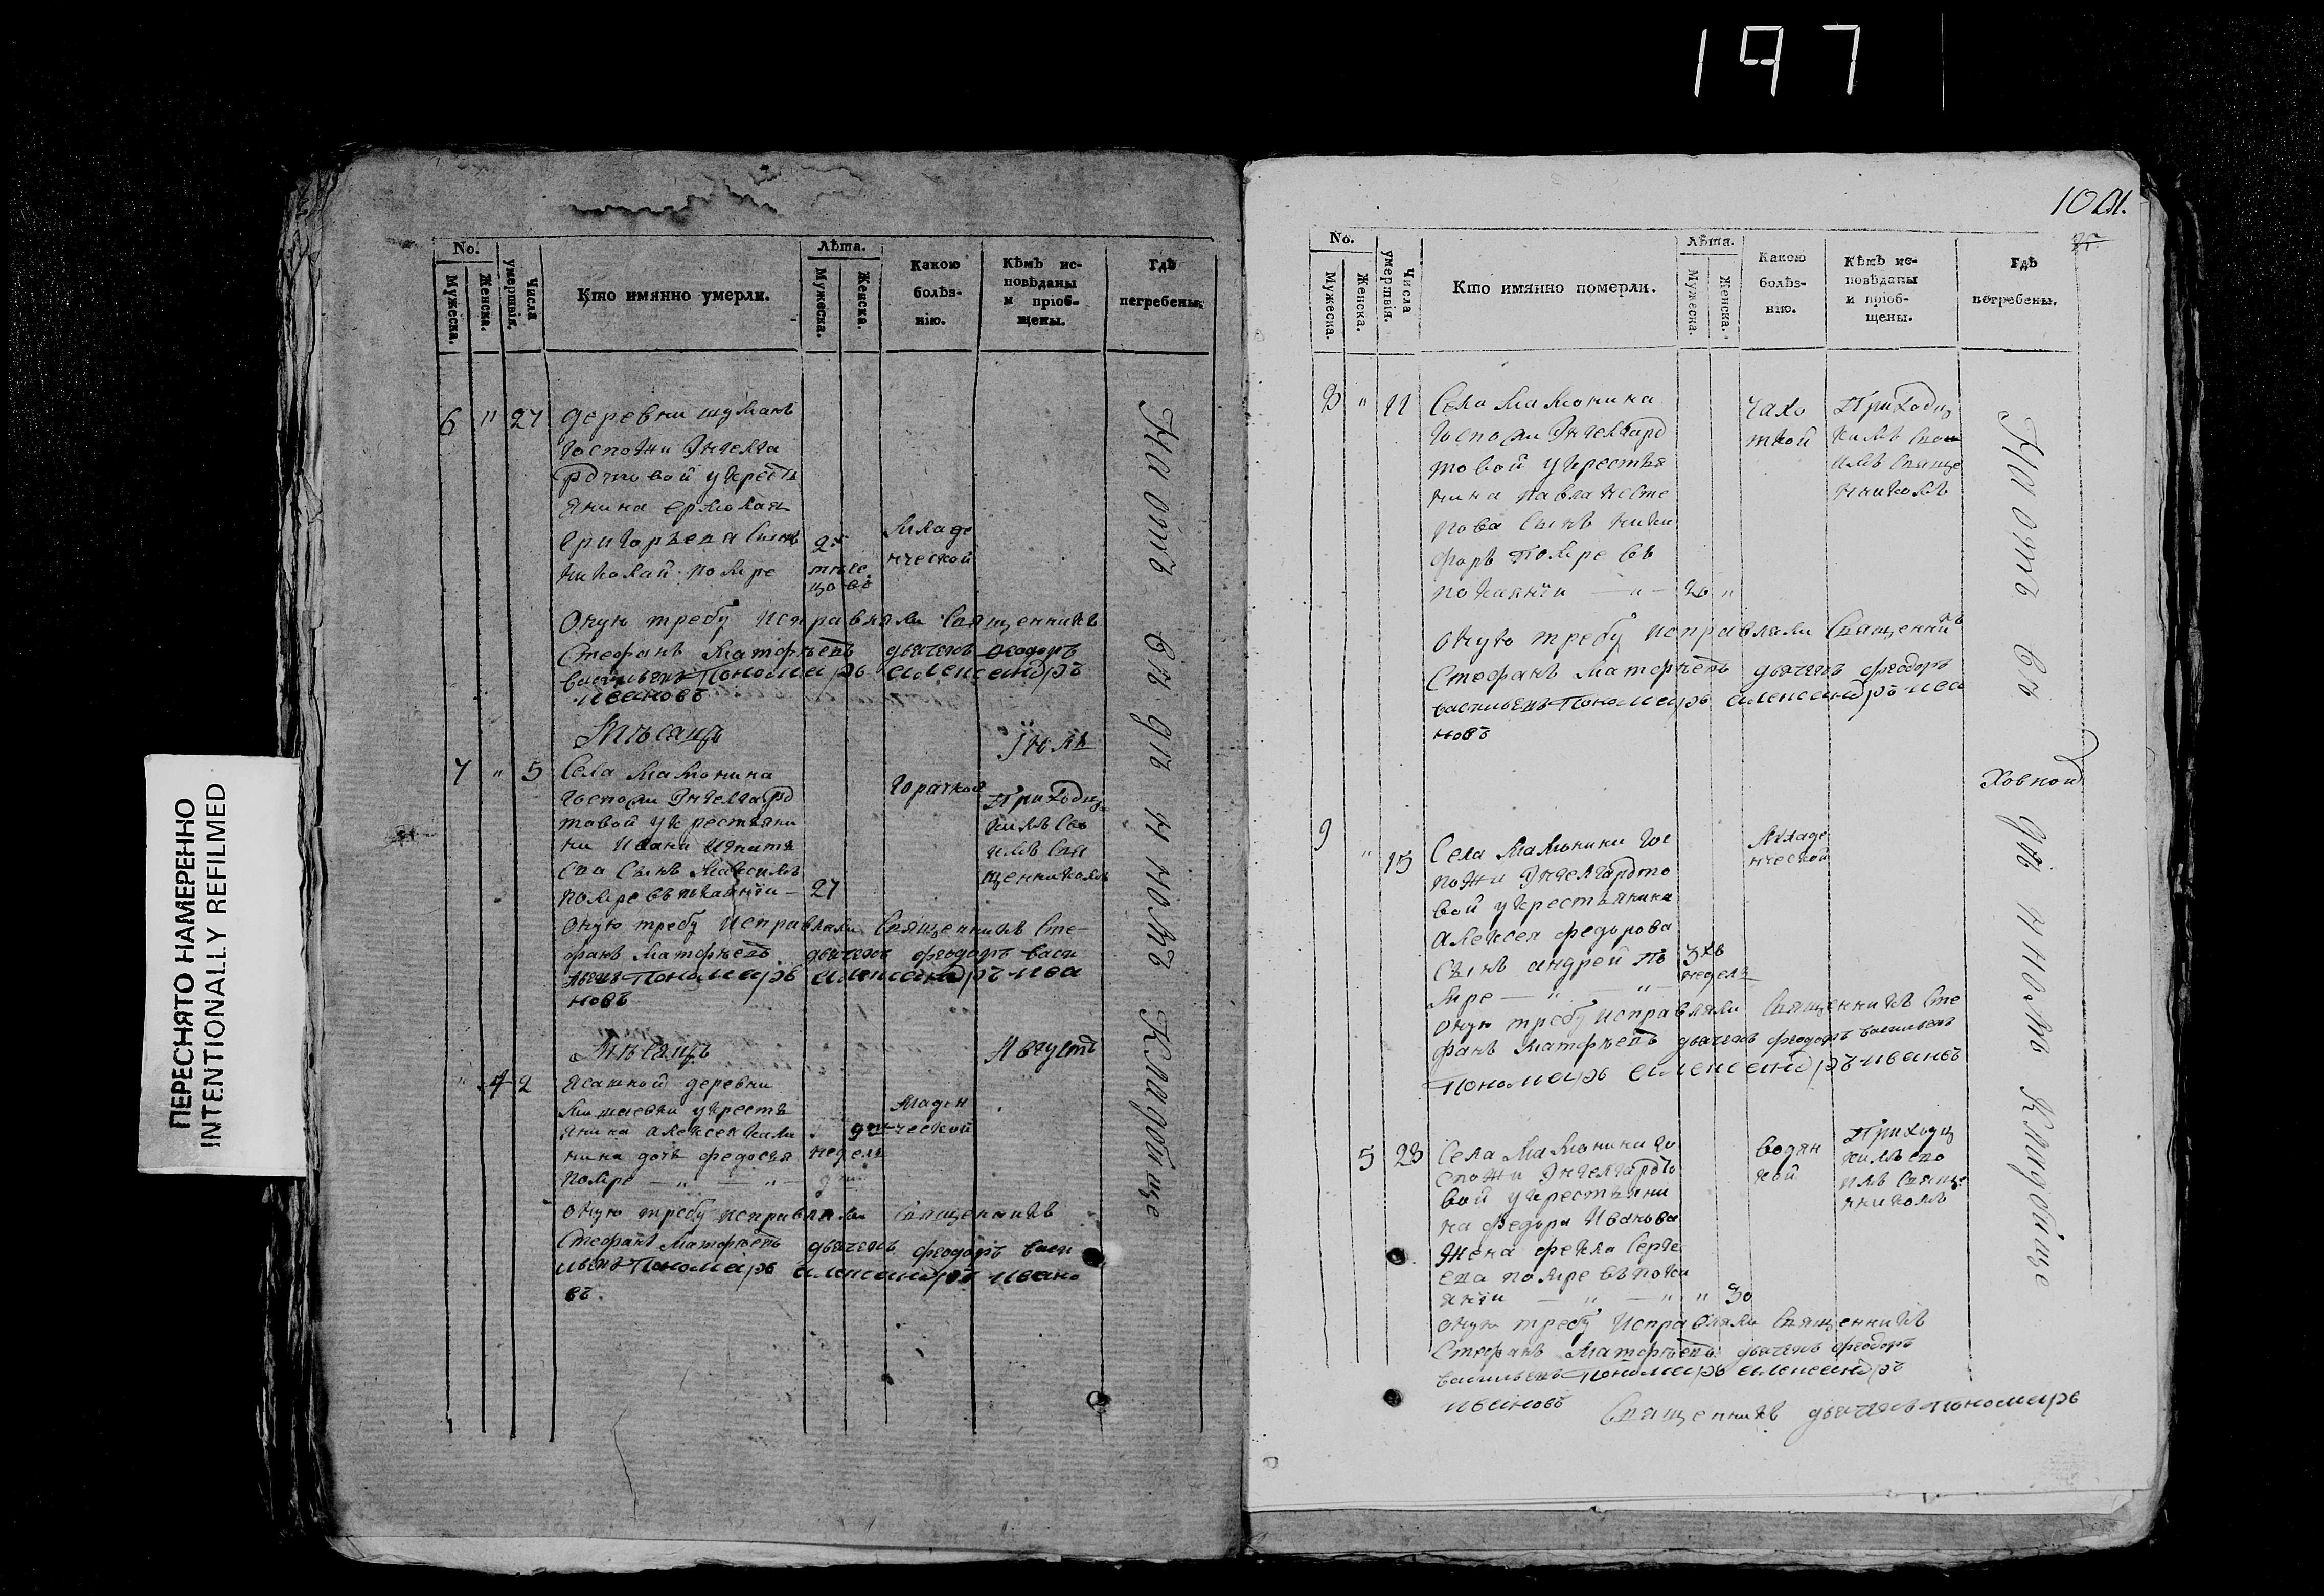 197
ПЕРЕСНЯТО НАМЕРЕННО
INTENTIONALLY REFILMED
No.
Мужеска.
Женска.
Числа умертвія.
Кто имянно умерли.
Лѣта.
Мужеска.
Женска.
Какою
болѣз-
нію.
Кѣмъ ис-
повѣданы
и пріоб-
щены.
Гдѣ
погребены.
6 " 27 деревни
госпожи Энгелга
рдтовой укресть
янина ермолая
григорьева сынъ
николай помре
младе
нческой
Оную требу исправляли священникъ
Стефанъ Матфѣевъ дьячекъ феодоръ
васильевъ Пономарь александръ
ивановъ
Мѣсяцъ
Іюль
7 " 5 Села Мамонина
госпожи Энгелгард
товой укрестьяни
на Ивана Игнатье
ва сынъ Максимъ
помре въ покаянїи — 27
горячкой
Приходц
кимъ сво
имъ свя
щенникомъ
оную требу исправляли священникъ Сте
фанъ Матфѣевъ дьячекъ феодоръ васи
льевъ Пономарь александръ ива
новъ
Мѣсяцъ
Августъ
" 4 2 ясашной деревни
укресть
янина алексея кали
нина дочь федосья
помре — " — " —
недель
младен
ческой
оную требу исправляли священникъ
Стефанъ Матфѣевъ дьячекъ феодоръ васи
льевъ Пономарь александръ ивано
въ.
На отъ вѣ дѣ нномъ Кладбище
10 
No.
Мужеска.
Женска.
Числа умертвія.
Кто имянно померли.
Лѣта.
Мужеска.
Женска.
Какою
болѣз-
нію.
Кѣмъ ис-
повѣданы
и пріоб-
щены.
Гдѣ
погребены.
8 " 11 Села Мамонина
госпожи Энгелгард
товой укрестья
нина павла несте
рова сынъ ники
форъ помре въ
покаянїи — " —
чахо
ткой
Приходц
кимъ сво
имъ свяще
нникомъ
оную требу исправляли священникъ
Стефанъ Матфѣевъ дьячекъ феодоръ
васильевъ Пономарь александръ ива
новъ
9 " 15 Села Мамонина гос
пожи Энгелгардто
вой укрестьянина
алексея федорова
сынъ андрей по
мре — " — " —
3хъ
недель
младе
нческой
оную требу исправляли священникъ Сте
фанъ Матфѣевъ дьячекъ феодоръ васильевъ
Пономарь александръ ивановъ
5 23 Села Мамонина го
спожи Энгелгардто
вой укрестьяни
на федора Иванова
жена фекла Серге
ева помре въ пока
янїи — " — " " 30
водян
кой
Приходц
кимъ сво
имъ священ
никомъ
оную требу исправляли священникъ
Стефанъ Матфѣевъ дьячекъ феодоръ
васильевъ Пономарь александръ
ивановъ
На отъ вѣ дѣ нномъ Кладбище
Священникъ дьячекъ Пономарь